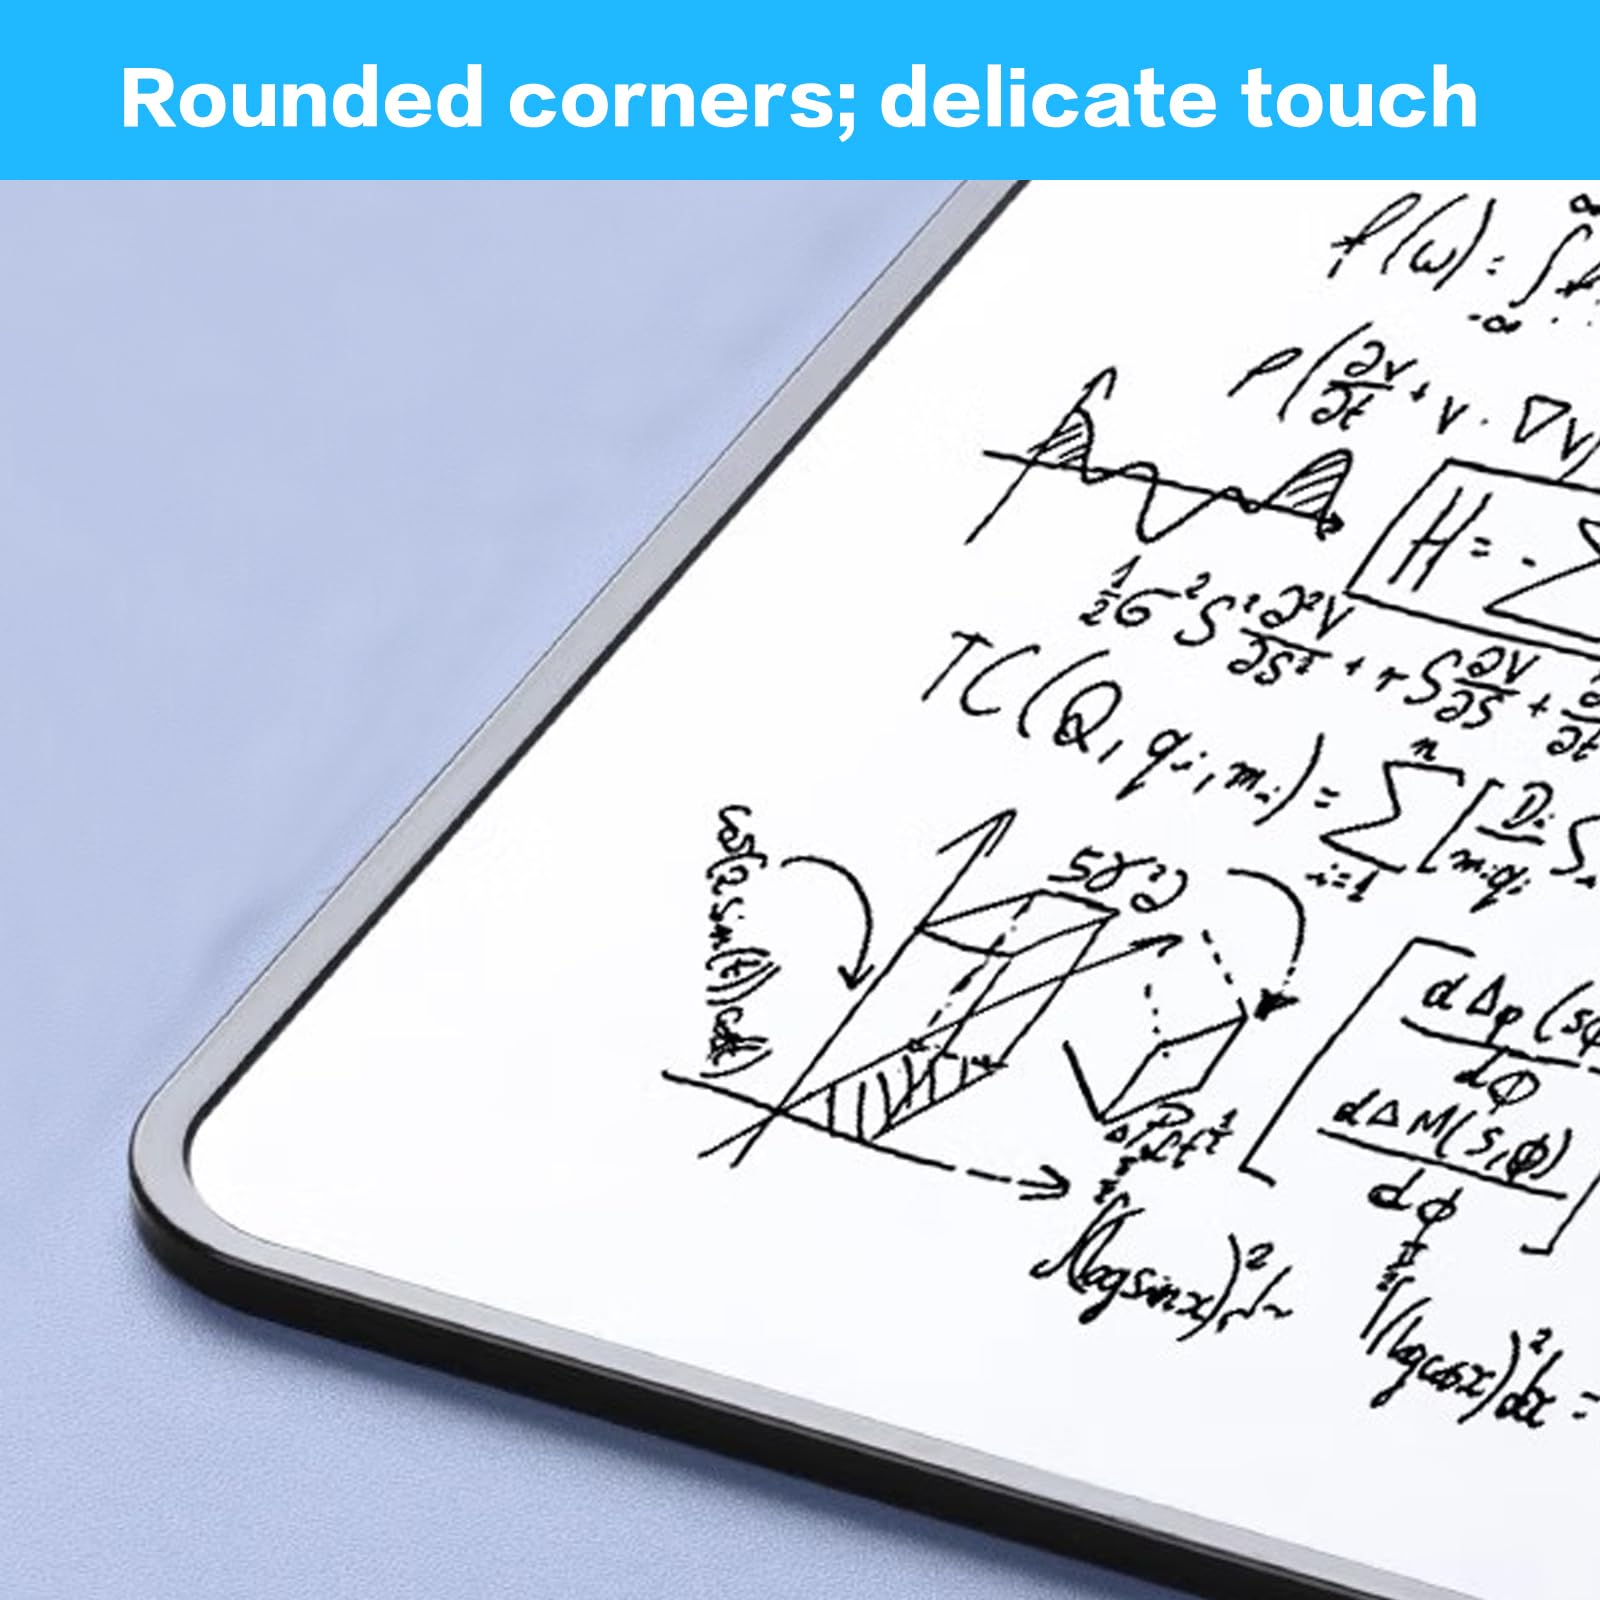 Rounded corners; delicate touch
f(ω) = ∫
∞
-∞
P(∂v/∂t + v · ∇v)
H = - Σ
1/2 σ² S² ∂²V/∂S² + r S ∂V/∂S + ∂
∂t
TC(Q, qi, mi) = Σ n i=1 [Di/miqi S
cos(2.sin(t))
d Δp (sφ
dφ
d Δ M(s,φ)
dφ
(log sin x)²
π
(log cos x)² dx =